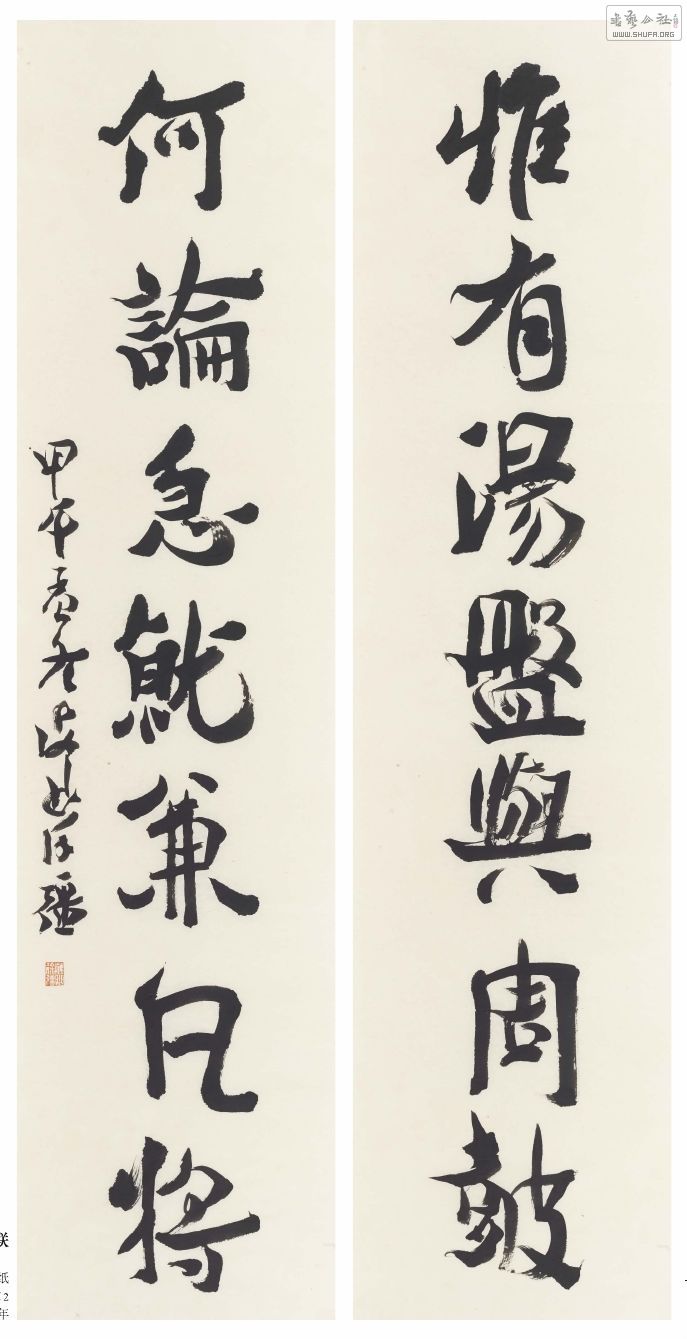 惟有湯盤與周鼓
何論急就兼凡將
甲午孟冬海㐆徐疆
書藝公社
WWW.SHUFA.ORG
联
纸
2
年